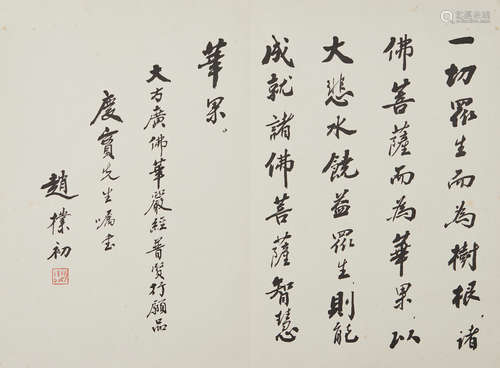 一切眾生而為樹根，諸
佛菩薩而為華果，以
大悲水饒益眾生，則能
成就諸佛菩薩智慧
華果。
大方廣佛華嚴經普賢行願品
慶賓先生囑書
趙樸初